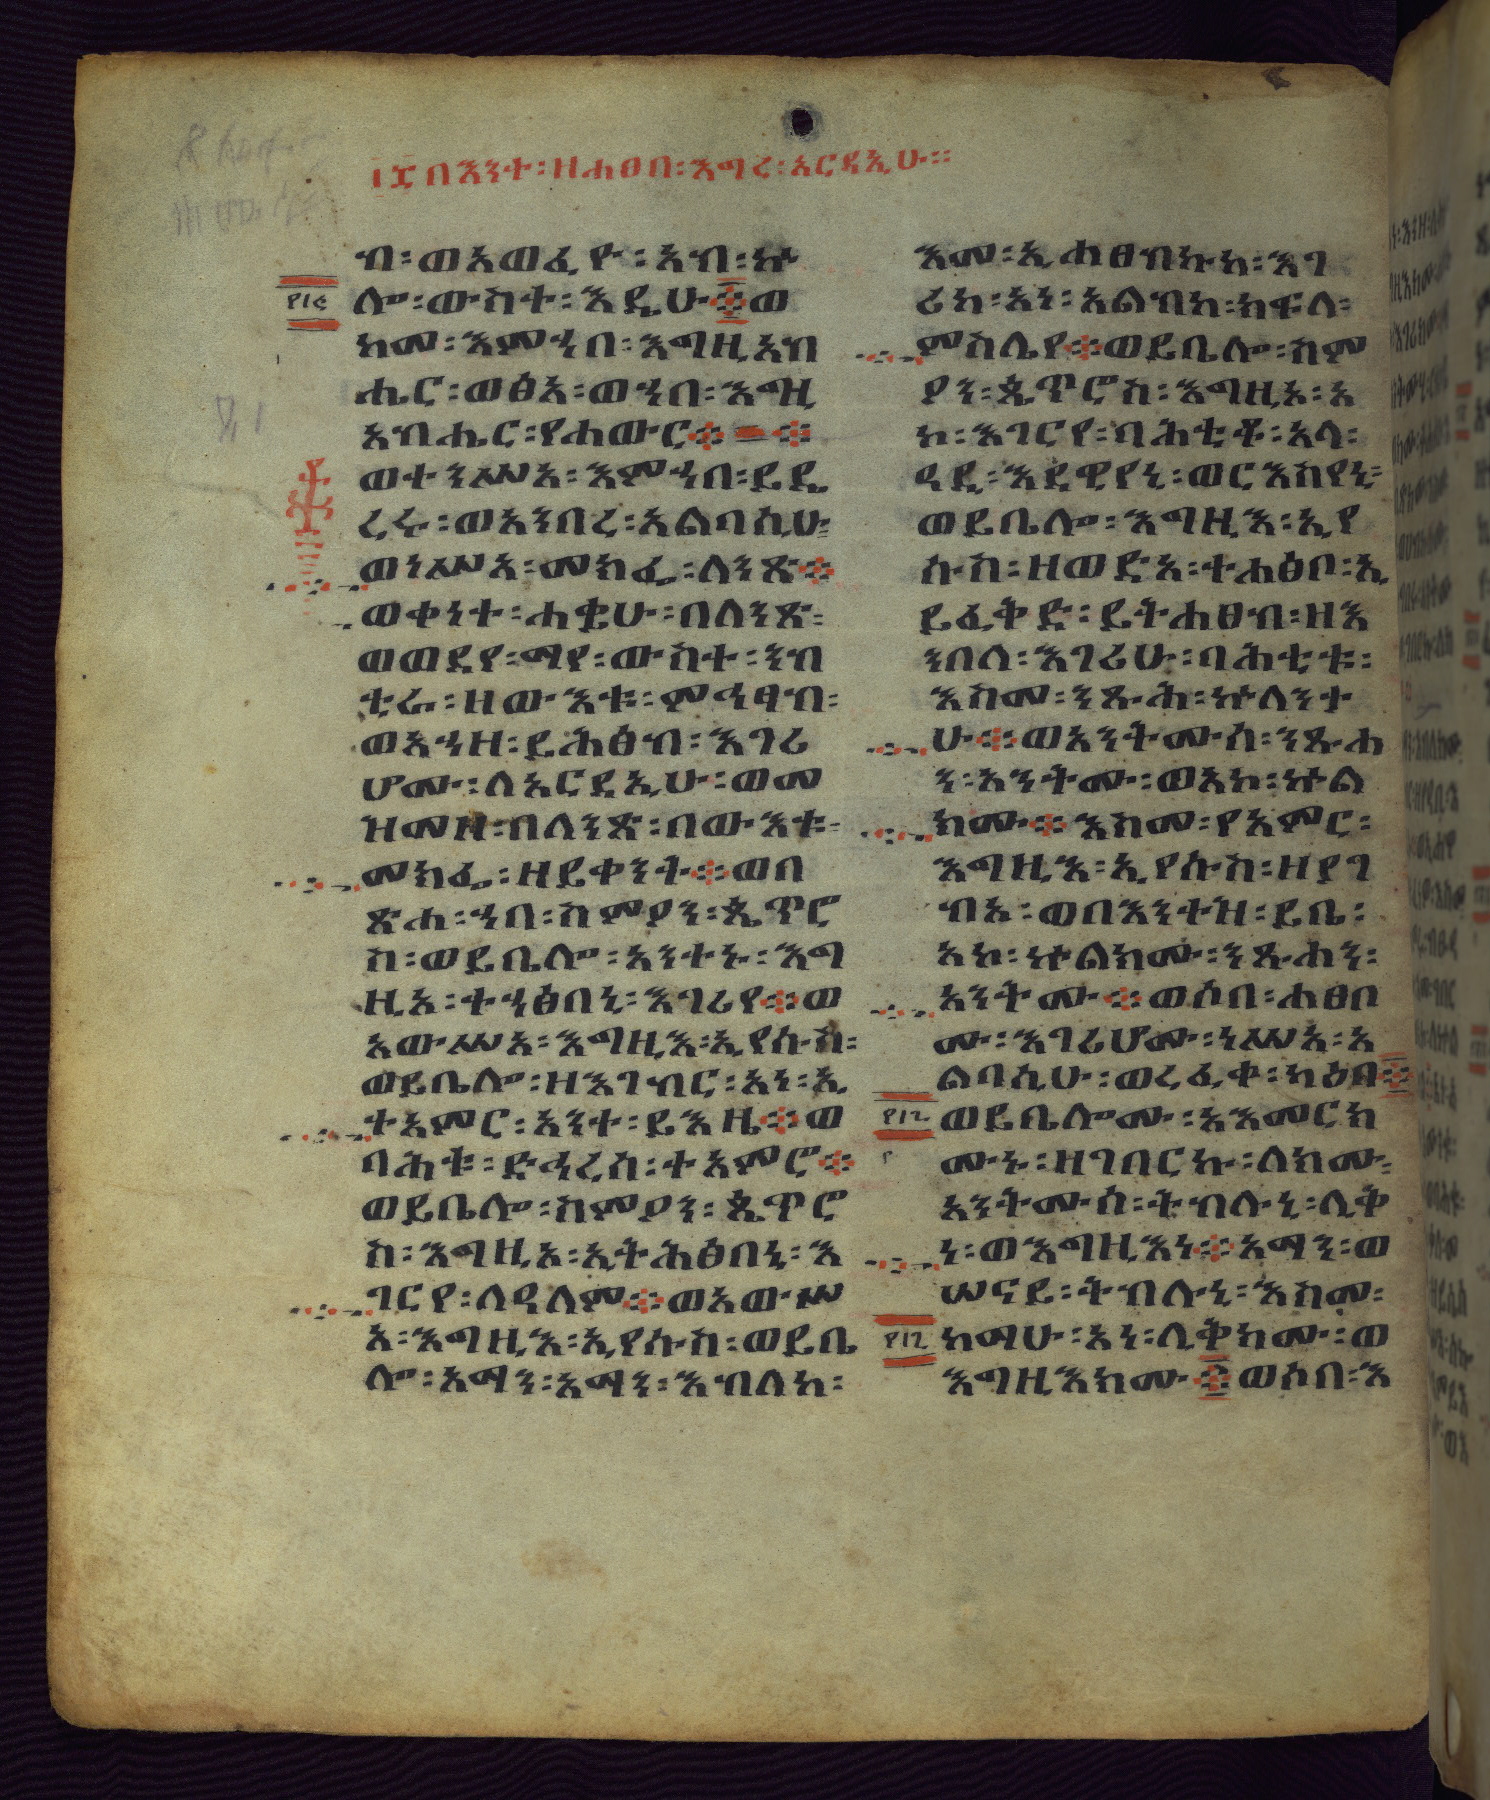 ፲፬ በእንተ፡ዘሐፀበ፡እግረ፡አርዳኢሁ።
ብ፡ወአወፈዮ፡አብ፡ኵ
ሎ፡ውስተ፡እዲሁ፨ወ
ከመ፡እምኀበ፡እግዚአብ
ሔር፡ወፅአ፡ወኀበ፡እግዚ
አብሔር፡የሐውር፨
ወተንሥአ፡እምኀበ፡ይዴ
ረሩ፡ወአንበረ፡አልባሲሁ፡
ወነሥአ፡መክፌ፡ለንጽ፨
ወቀነተ፡ሐቌሁ፡በለንጽ፡
ወወደየ፡ማየ፡ውስተ፡ንብ
ቲራ፡ዘውእቱ፡ምኅፃብ፡
ወአኀዘ፡ይሕፅብ፡እገሪ
ሆሙ፡ለአርዳኢሁ፡ወመ
ዝመዘ፡በለንጽ፡በውእቱ፡
መክፌ፡ዘይቀንት፨ወበ
ጽሐ፡ኀበ፡ስምዖን፡ጴጥሮ
ስ፡ወይቤሎ፡አንተኑ፡እግ
ዚአ፡ተኀፅበኒ፡እገሪየ፨ወ
አውሥአ፡እግዚእ፡ኢየሱስ፡
ወይቤሎ፡ዘእገብር፡አነ፡ኢ
ተአምር፡አንተ፡ይእዜ፨ወ
ባሕቱ፡ድኅረሰ፡ተአምሮ፨
ወይቤሎ፡ስምዖን፡ጴጥሮ
ስ፡እግዚአ፡ኢትሕፅበኒ፡እ
ገርየ፡ለዓለም፨ወአውሥ
አ፡እግዚእ፡ኢየሱስ፡ወይቤ
ሎ፡አማን፡አማን፡እብለከ፡
እመ፡ኢሐፀብኩከ፡እገ
ሪከ፡አነ፡አልብከ፡ክፍለ፡
ምስሌየ፨ወይቤሎ፡ስም
ዖን፡ጴጥሮስ፡እግዚአ፡አ
ኮ፡እገርየ፡ባሕቲቶ፡አላ፡
ዓዲ፡እደዊየኒ፡ወርእስየኒ፡
ወይቤሎ፡እግዚእ፡ኢየ
ሱስ፡ዘወድአ፡ተሐፅቦ፡ኢ
ይፈቅድ፡ይትሐፀብ፡ዘእ
ንበለ፡እገሪሁ፡ባሕቲቱ፡
እስመ፡ንጹሕ፡ኵለንተ
ሁ፨ወአንትሙሰ፡ንጹሐ
ን፡አንትሙ፡ወአኮ፡ኵል
ክሙ፨እስመ፡የአምር፡
እግዚእ፡ኢየሱስ፡ዘያገ
ብአ፡ወበእንተዝ፡ይቤ፡
አኮ፡ኵልክሙ፡ንጹሐን፡
አንትሙ፨ወሶበ፡ሐፀቦ
ሙ፡እገሪሆሙ፡ነሥአ፡አ
ልባሲሁ፡ወረፈቀ፡ካዕበ፨
ወይቤሎሙ፡አእመርክ
ሙኑ፡ዘገበርኩ፡ለክሙ፡
አንትሙሰ፡ትብሉኒ፡ሊቅ
ነ፡ወእግዚእነ፨አማን፡ወ
ሠናይ፡ትብሉኒ፡እስመ፡
ከማሁ፡አነ፡ሊቅክሙ፡ወ
እግዚእክሙ፨ወሶበ፡እ